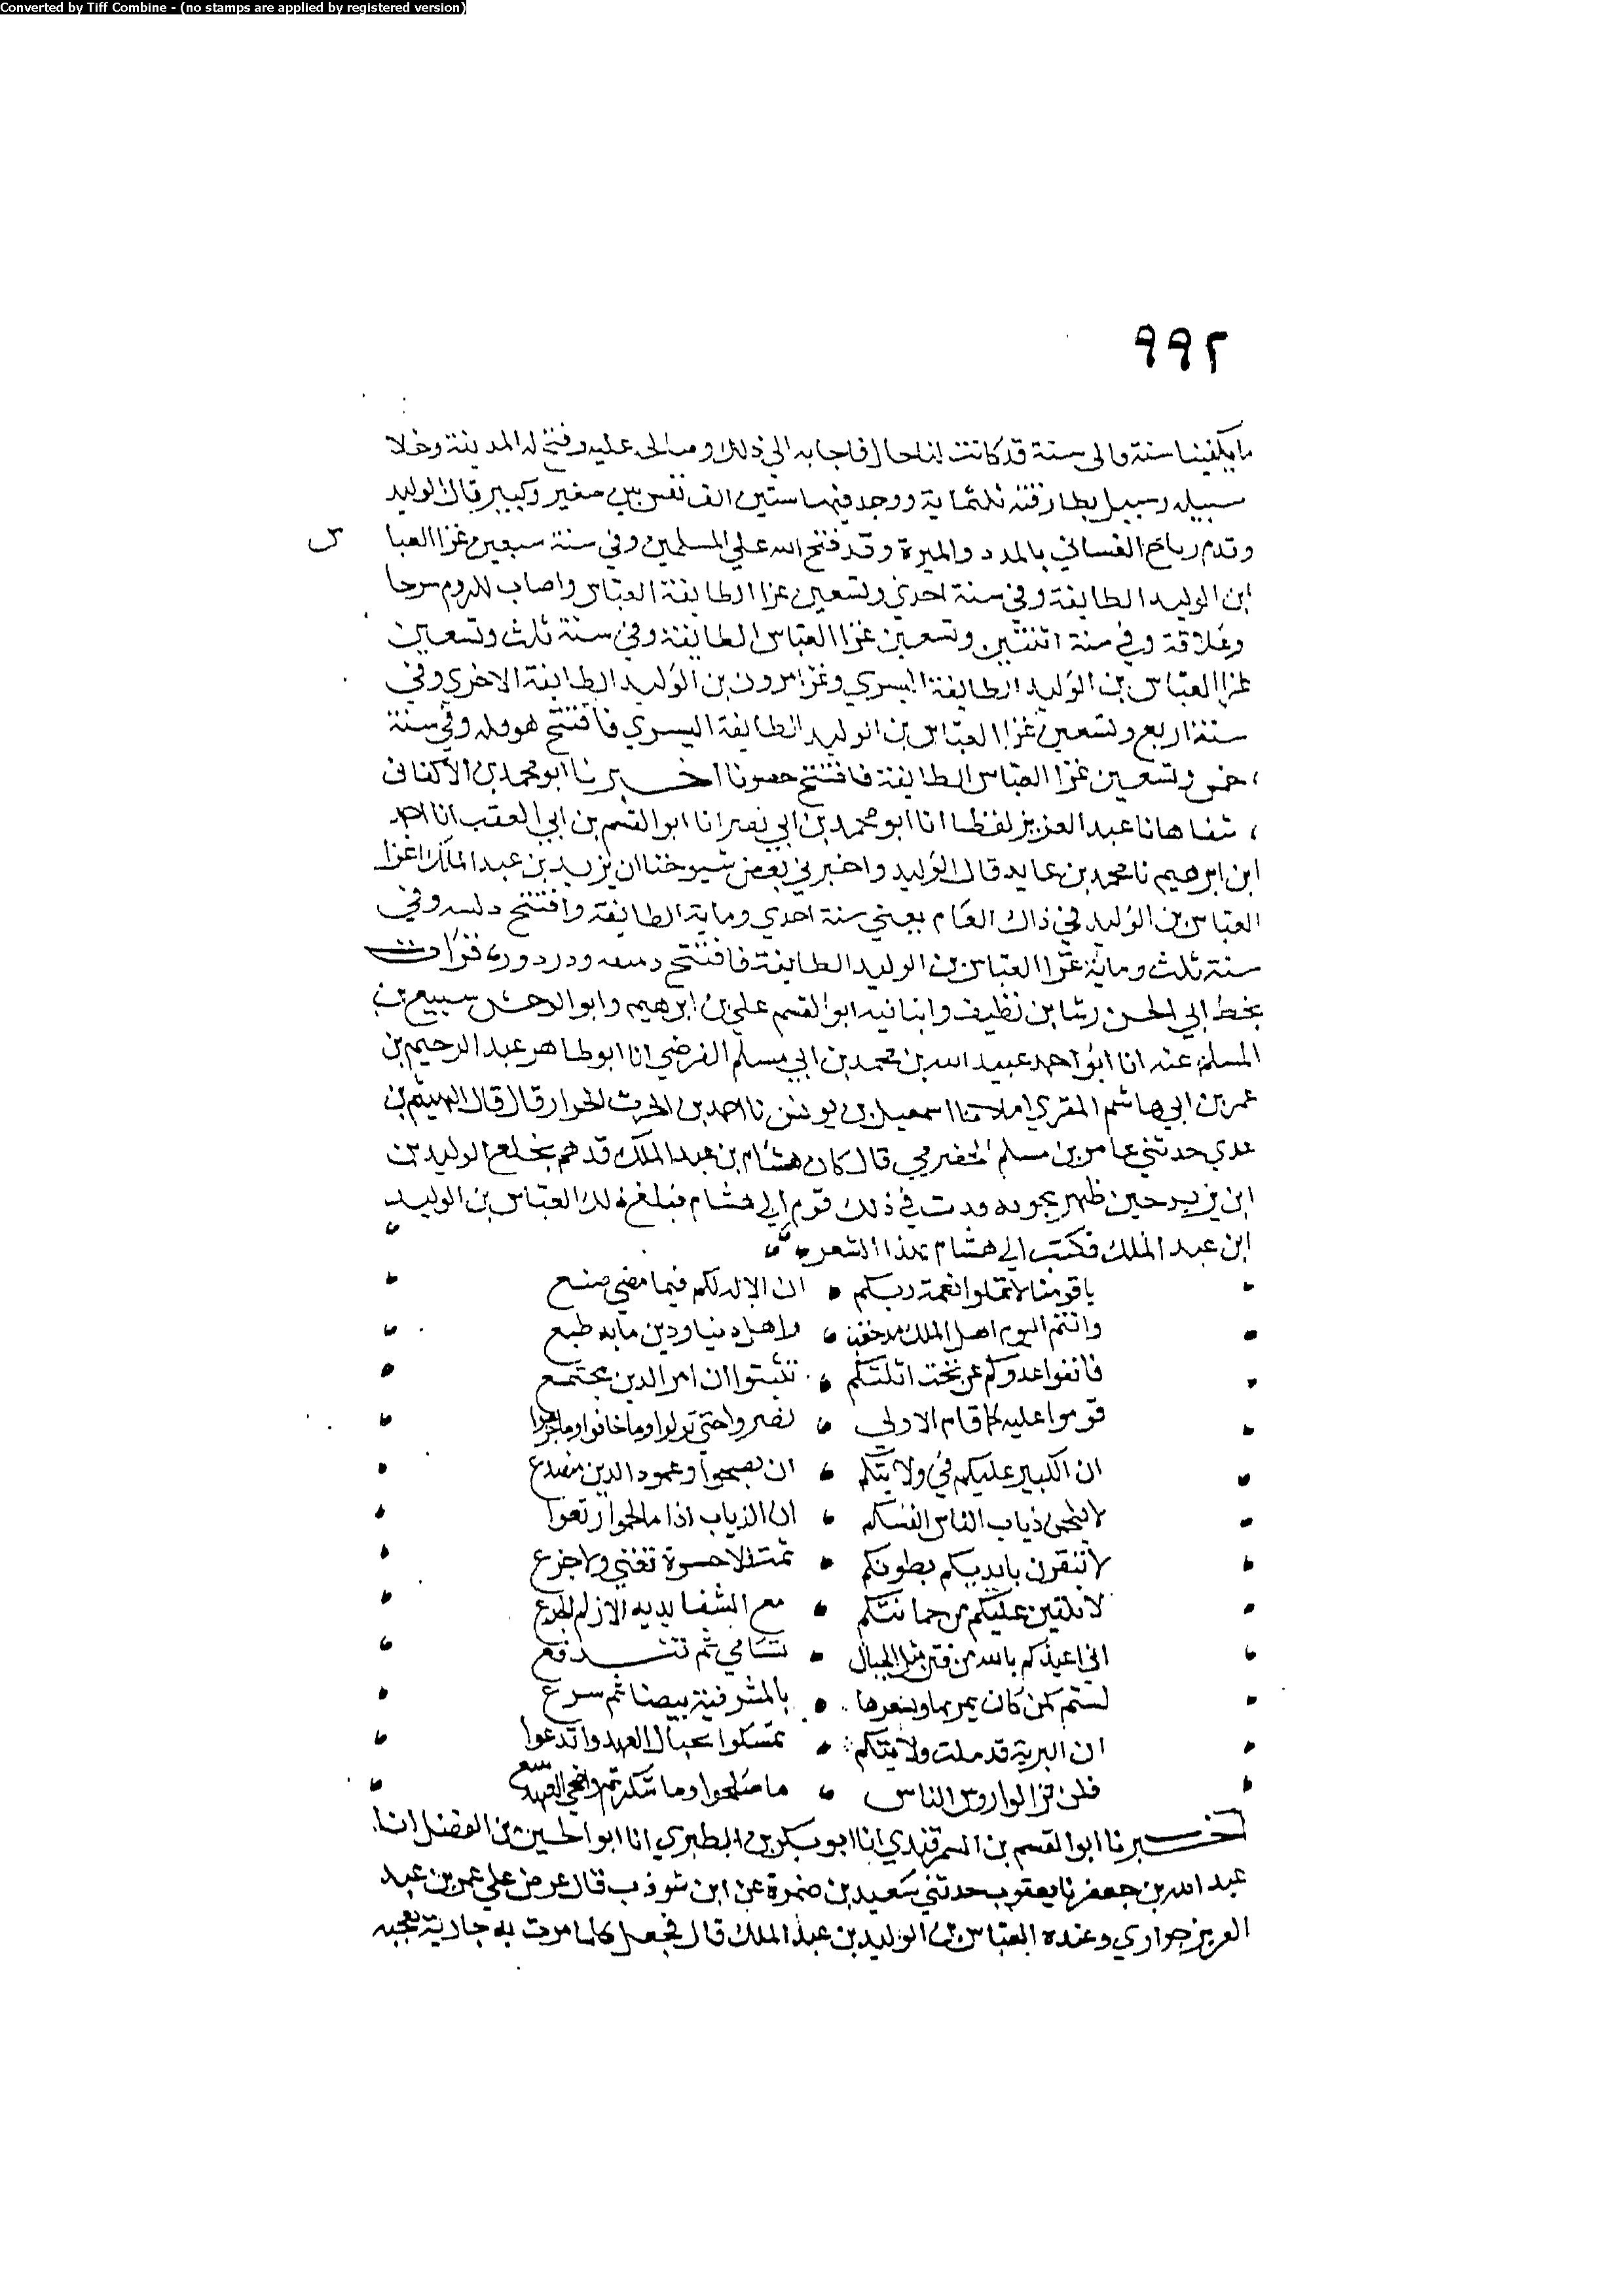 Converted by Tiff Combine - (no stamps are applied by registered version)
٩٩٢
ما يكفينا سنة والى سنة قد كانت لنا حال فاجابه الي ذلك وصالحه عليه وفتح له المدينة وخلا
سبيله وسبيل بطارقته ثلثماية ووجد فيها ستين الف نفس بين صغير وكبير قال الوليد
وقدم رباح الغساني بالمدد والميرة وقد فتح الله علي المسلمين وفي سنة سبعين غزا العبا س
ابن الوليد الطايفة وفي سنة احدي وتسعين غزا الطايفة العباس واصاب للروم سرحا
وعلاقة وفي سنة اثنتين وتسعين غزا العباس الطايفة وفي سنة ثلث وتسعين
غزا العباس بن الوليد الطايفة اليسري وغزا مرون بن الوليد الطايفة الاخري وفي
سنة اربع وتسعين غزا العباس بن الوليد الطايفة اليسري فافتتح هو وفي سنة
خمس وتسعين غزا العباس الطايفة فافتتح حصونا اخبرنا ابو محمد بن الاكفاني
شفاها نا عبد العزيز لفظا انا ابو محمد بن ابي نصر انا ابو القسم بن ابي العقب انا احمد
ابن ابرهيم نا محمد بن عايد قال الوليد واخبرني بعض شيوخنا ان يزيد بن عبد الملك اغزا
العباس بن الوليد في ذاك العام يعني سنة احدي وماية الطايفة وافتتح دلسه وفي
سنة ثلث وماية غزا العباس بن الوليد الطايفة فافتتح دسه ودردوره قرات
بخط ابي الحسن رشا بن نظيف وانبانيه ابو القسم علي بن ابرهيم وابو الوحش سبيع بن
المسلم عنه انا ابو احمد عبيد الله بن محمد بن ابي مسلم الفرضي انا ابو طاهر عبد الرحيم بن
عمر بن ابي هاشم المقري املا نا اسمعيل بن يونس نا احمد بن الحرث الخراز قال قال الهيثم بن
عدي حدثني عامر بن مسلم الحضرمي قال كان هشام بن عبد الملك قد هم بخلع الوليد بن
ابن يزيد حين ظهر مجونه ودت في ذلك قوم الي هشام فبلغ ذلك العباس بن الوليد
ابن عبد الملك فكتب الي هشام بهذا الشعر
يا قومنا لا تملوا نعمة ربكم ان الاله لكم فيما مضي صنع
وانتم اليوم اهل الملك واهل دنيا ودين مابه طبع
فانفوا عدوكم عن نحت اثلتكم تثبتوا ان امر الدين مجتمع
قوموا عليه كما قام الاولي نصروا حتي تولوا وما خافوا وما
ان الكبير عليكم في ولايتكم ان تصبحوا وعمود الدين منصدع
لا تلحمن ذياب الناس انفسكم ان الذياب اذا ما الحموا رتعوا
لا تبقرن بايديكم بطونكم ثمت لا حسرة تغني ولا جزع
لا تلقين عليكم من جما مع الشقا يديه الازلم الجدع
اني اعيذكم بالله من فتن مثل الجبال تتسامي ثم تندفع
لستم كمن كان يمر بها ويسعرها بالمشرفية بيضا ثم سرع
ان البرية قد ملت ولايتكم تمسكوا بحبال العهد واتدعوا
فلن تزالوا روس الناس ما صلحوا وما شكرتم واضحي العهد
اخبرنا ابو القسم بن السمرقندي انا ابو بكر بن الطبري انا ابو الحسين بن الفضل انا
عبد الله بن جعفر نا يعقوب حدثني سعيد بن ضمرة عن ابن شوذب قال عرض علي عمر بن عبد
العزيز جواري وعنده العباس بن الوليد بن عبد الملك قال فجعل كلما مرت به جارية تعجبه